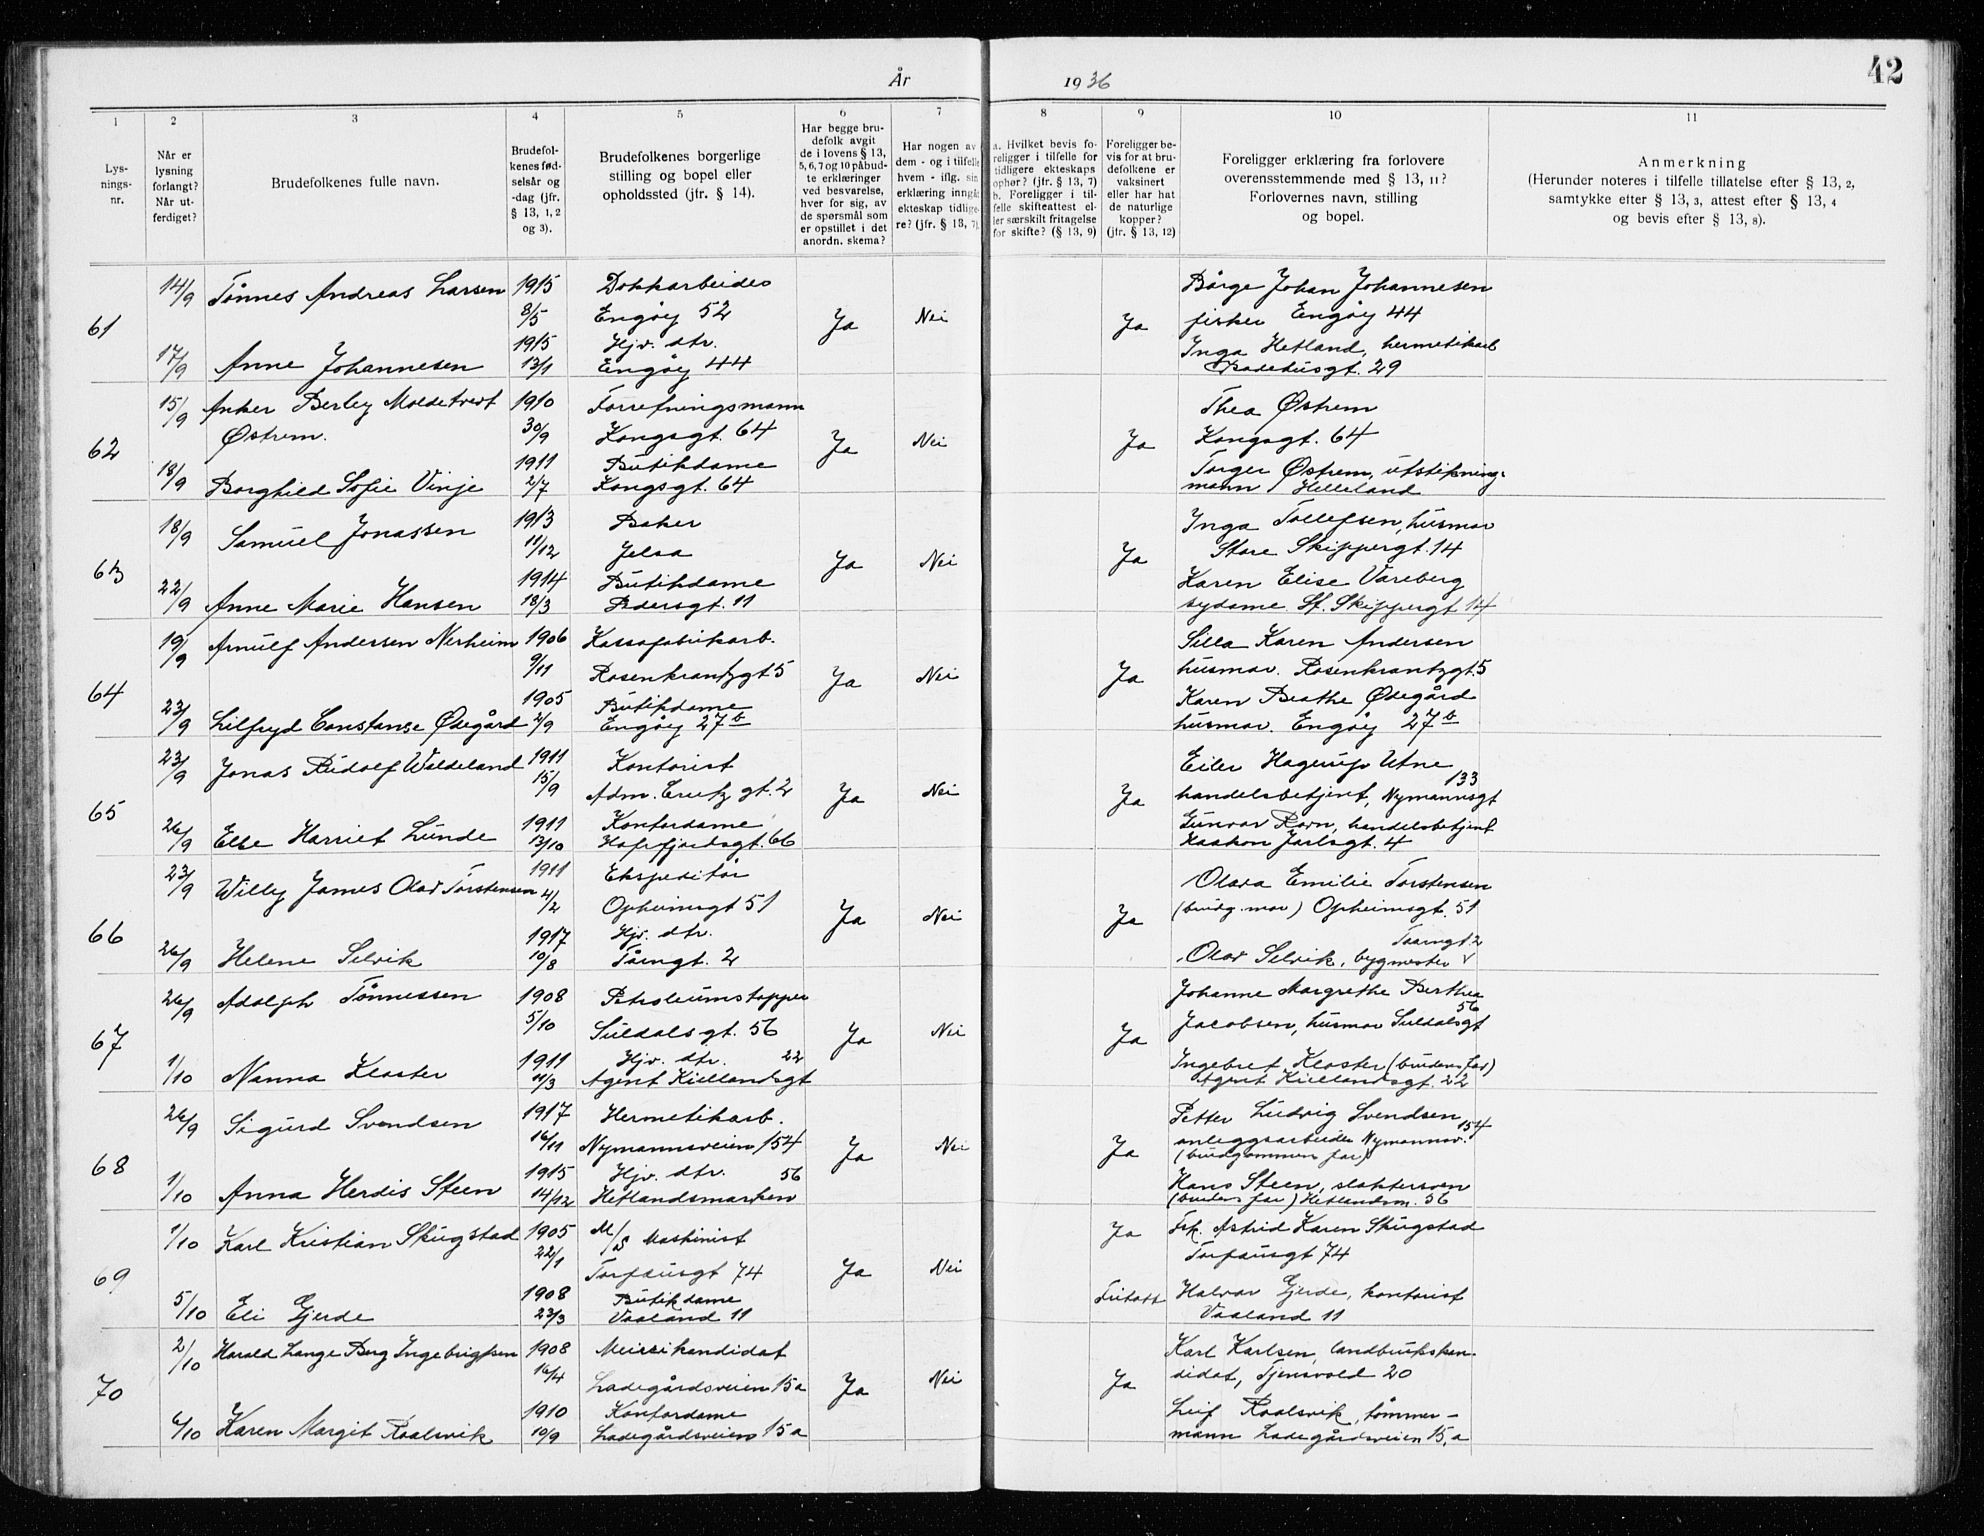 42
År 1936
1 2 3 4 5 6 7 8 9 10 11
Lys-
nings-
nr.
Når er
lysning
forlangt?
Når ut-
ferdiget?
Brudefolkenes fulle navn.
Brudefol-
kenes fød-
selsår og
-dag (jfr.
§ 13, 1, 2
og 3).
Brudefolkenes borgerlige
stilling og bopel eller
opholdssted (jfr. § 14).
Har begge bru-
defolk avgit
de i lovens § 13,
5, 6, 7 og 10 påbud-
te erklæringer
ved besvarelse,
hver for sig, av
de spørsmål som
er opstillet i det
anordn. skema?
Har nogen av
dem - og i tilfelle
hvem - iflg. sin
erklæring inngått
ekteskap tidlige-
re? (jfr. § 13, 7).
a. Hvilket bevis fo-
religger i tilfelle for
tidligere ekteskaps
ophør? (jfr. § 13, 7)
b. Foreligger i til-
felle skifteattest el-
ler særskilt fritagelse
for skifte? (§ 13, 9)
Foreligger be-
vis for at bru-
defolkene er
vaksinert
eller har hat
de naturlige
kopper?
(jfr. § 13, 12)
Foreligger erklæring fra forlovere
overensstemmende med § 13, 11?
Forlovernes navn, stilling
og bopel.
Anmerkning
(Herunder noteres i tilfelle tillatelse efter § 13, 2,
samtykke efter § 13, 3, attest efter § 13, 4
og bevis efter § 13, 8).
61
14/9 Tønnes Andreas Larsen 1915 Dokkarbeider
8/5 Engøy 52 Ja Nei Ja
17/9 Anne Johannesen 1915 Hjv. dtr.
13/1 Engøy 44
Børge Johan Johannesen
fisker Engøy 44
Inga Hetland, hermetikarb
Badehusgt. 29
62
15/9 Anker Berley Moldetvert 1910 Forrefningsmann
Østrem. 30/9 Kongsgt. 64 Ja Nei Ja
18/9 Borghild Sofie Vinje 1911 Butikdame
2/7 Kongsgt. 64
Thea Østrem
Kongsgt. 64
Torger Østrem, utstikning-
mann Helleland
63
18/9 Samuel Jonassen 1913 Baker
11/12 Jelsa Ja Nei Ja
22/9 Anne Marie Hansen 1914 Butikdame
18/3 Pedersgt. 11
Inga Tollefsen, husmor
Store Skippergt. 14
Karen Elise Vareberg
sydame St. Skippergt 14
64
19/9 Arnulf Andersen Nerheim 1906 Kassafabrikarb.
9/11 Rosenkrantzgt 5 Ja Nei Ja
23/9 Lilfryd Constanse Ødegård 1905 Butikdame
2/9 Engøy 27 b
Silla Karen Andersen
husmor. Rosenkrantzgt. 5
Karen Beathe Ødegård
husmor. Engøy 27 b
65
23/9 Jonas Rudolf Waldeland 1911 Kontorist
15/9 Adm. Crutz gt. 2 Ja Nei Ja
26/9 Else Harriet Lunde 1911 Kontordame
13/10 Hafrsfjordsgt. 66
Eiler Hagerup Utne
133
handelsbetjent, Nymannsgt
Gunvor Ravn, handelsbetjent
Haakon Jarlsgt. 4
66
23/9 Willy James Olav Torstensen 1911 Ekspeditør
4/2 Opheimsgt 51 Ja Nei Ja
26/9 Helene Selvik 1917 Hjv. dtr.
10/8 Tårngt. 2
Olava Emilie Torstensen
(brudg. mor) Opheimsgt. 51
Taarngt 2
Olav Selvik, bygmester
67
26/9 Adolph Tønnessen 1908 Petroleumstapper
5/10 Suldalsgt. 56 Ja Nei Ja
1/10 Nanna Kloster 1911 Hjv. dtr. 22
11/3 Agent Kiellandsgt
Johanne Margrethe Berthea
56
Jacobsen, husmor Suldalsgt
Ingebret Kloster (brudens far)
Agent Kiellandsgt. 22
68
26/9 Sigurd Svendsen 1917 Hermetikarb.
16/11 Nymannsveien 154 Ja Nei Ja
1/10 Anna Herdis Steen 1915 Hjv. dtr. 56
14/12 Hetlandsmarken
Petter Ludvig Svendsen
154
anleggsarbeider Nymannsv.
(brudgommens far)
Hans Steen, slaktersvn
(brudens far) Hetlandsm. 56
69
1/10 Karl Kristian Skugstad 1905 M/S Maskinist
22/1 Torfæusgt 74 Ja Nei Ja
5/10 Eli Gjerde 1908 Butikdame
23/3 Vaaland 11 Fritatt
Frk. Astrid Karen Skugstad
Torfæusgt 74
Halvor Gjerde, kontorist
Vaaland 11
70
2/10 Harald Lange Berg Ingebrigtsen 1908 Meierikandidat
16/4 Ladegårdsveien 15 a Ja Nei Ja
6/10 Karen Margit Roalsvik 1910 Kontordame
10/9 Ladegårdsveien 15 a
Karl Karlsen, landbrukskan-
didat, Tjensvold 20
Leif Roalsvik, tømmer-
mann Ladegårdsveien 15, a